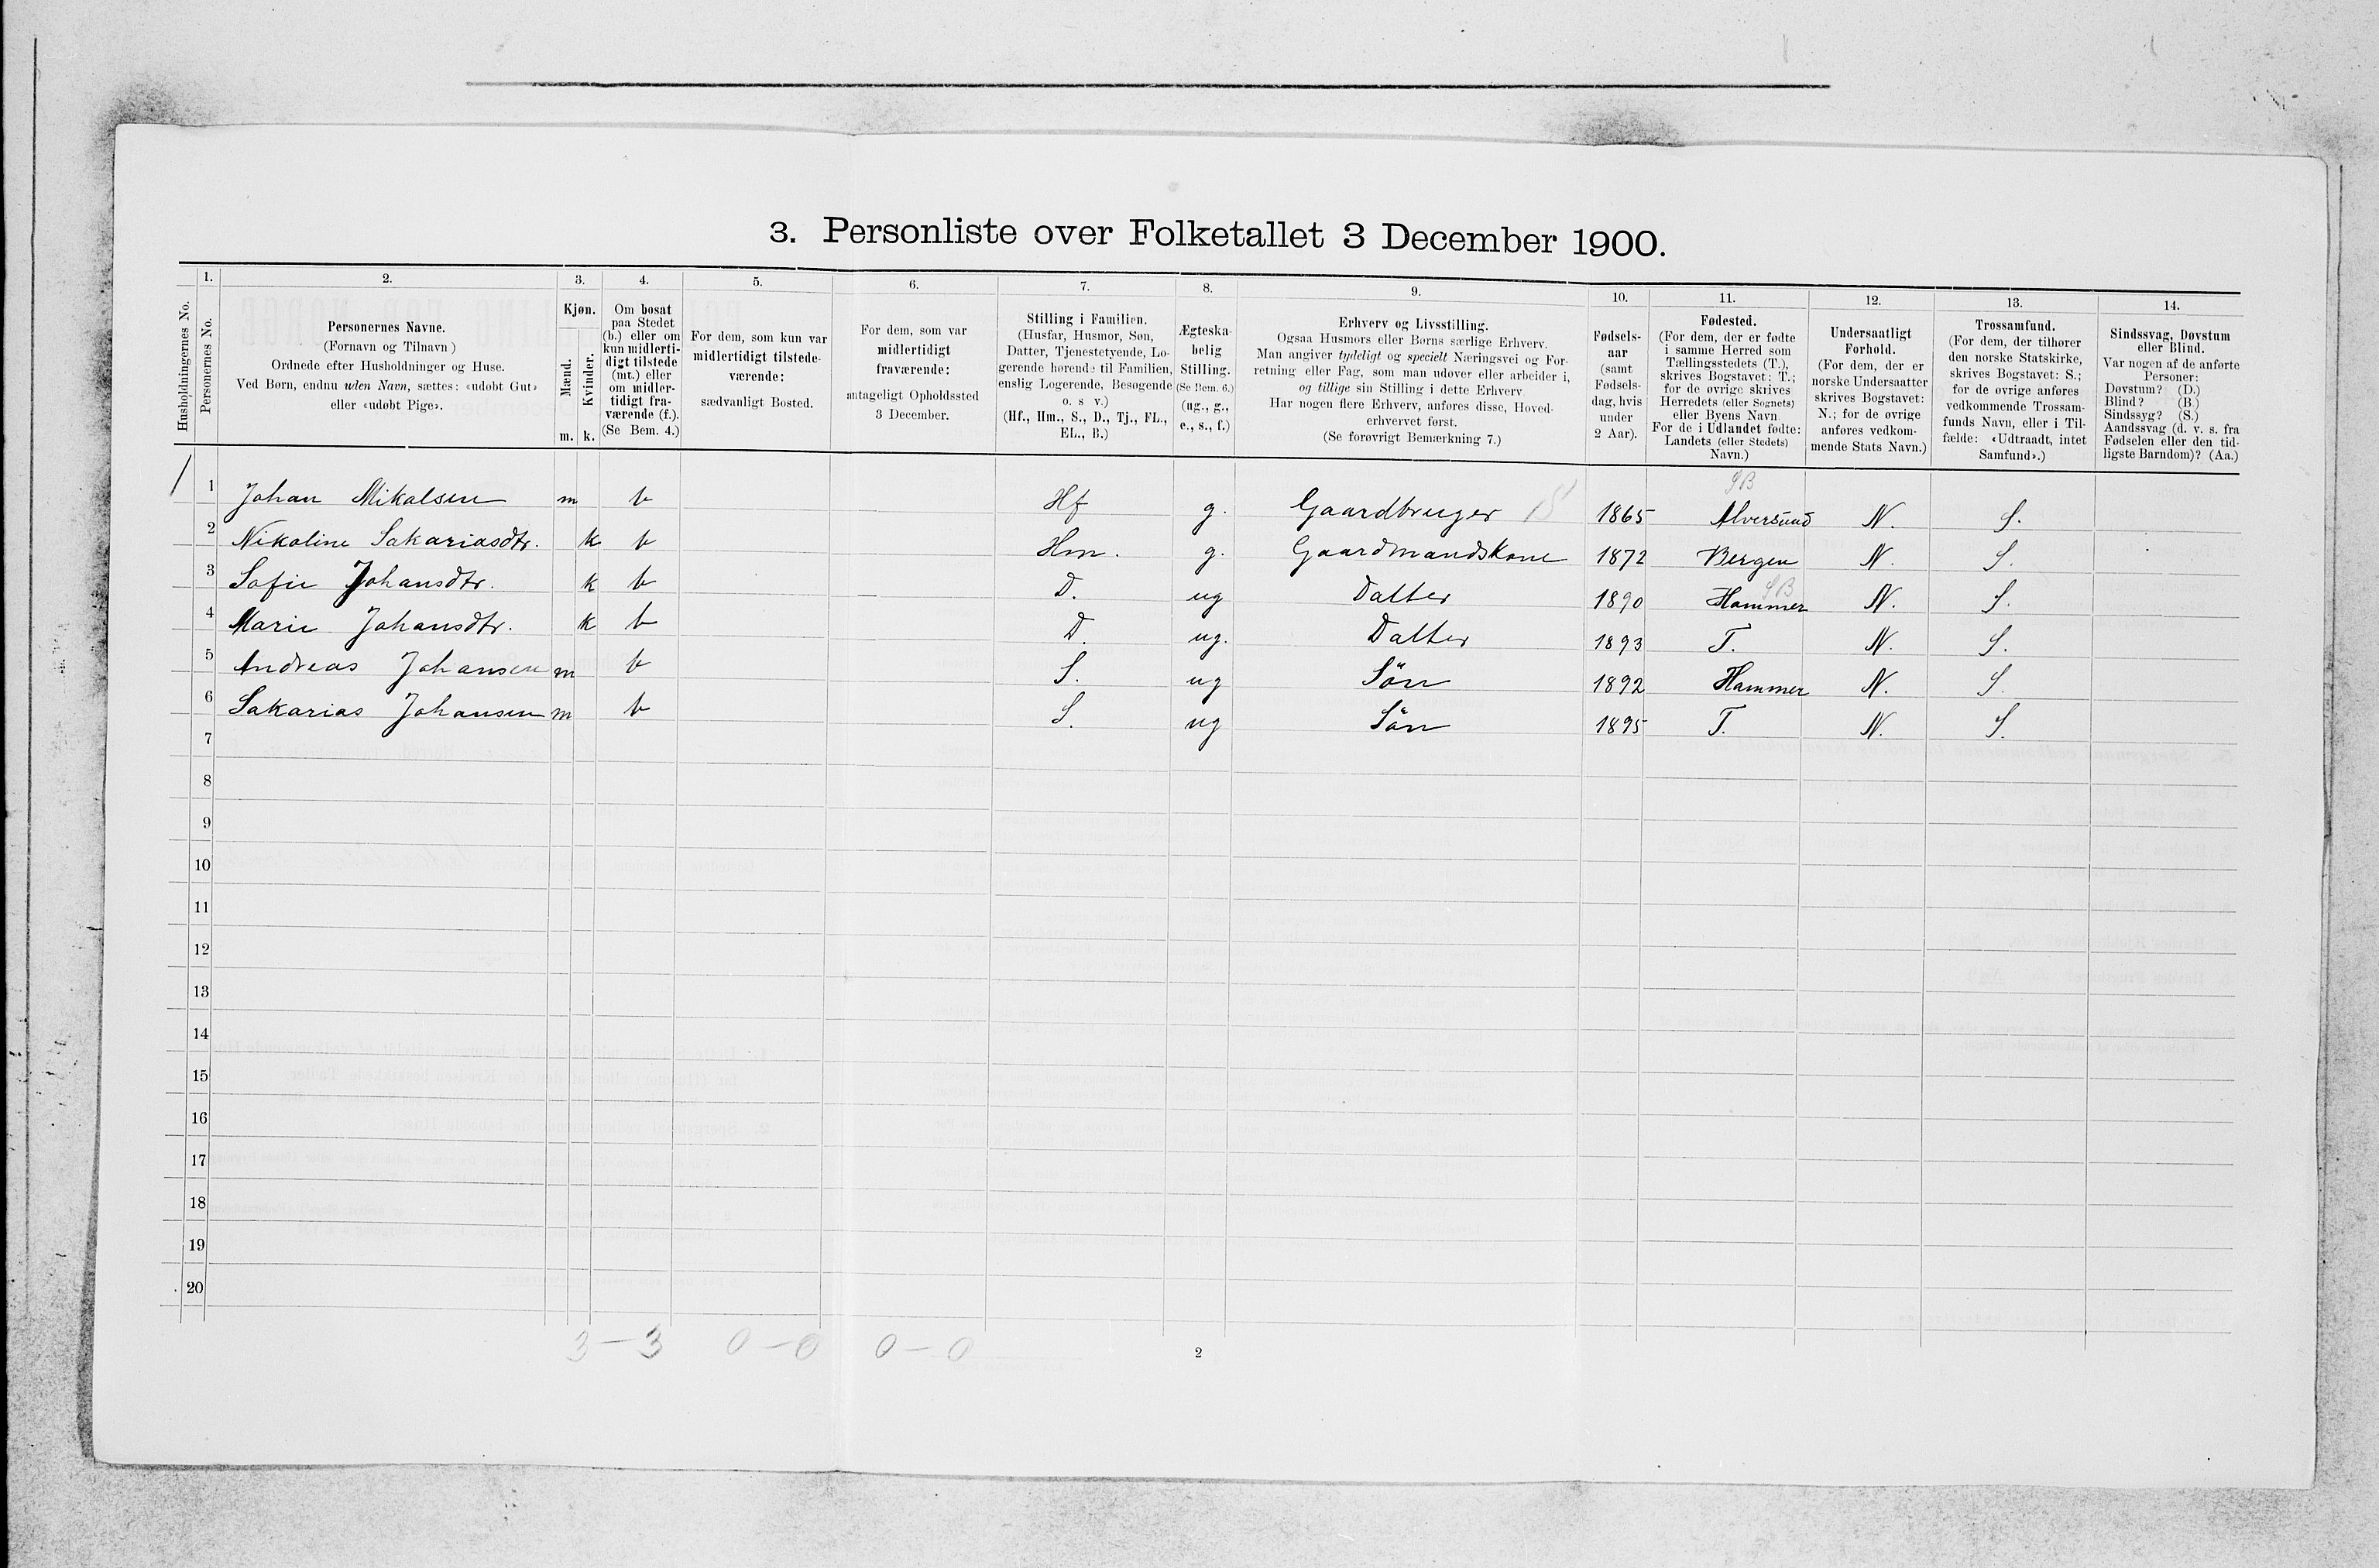 3. Personliste over Folketallet 3 December 1900.
Husholdningernes No.
1. Personernes No.
2. Personernes Navne.
(Fornavn og Tilnavn)
Ordnede efter Husholdninger og Huse.
Ved Børn, endnu uden Navn, sættes: «udøbt Gut»
eller «udøbt Pige».
3. Kjøn.
Mænd. m.
Kvinder. k.
4. Om bosat
paa Stedet
(b.) eller om
kun midlerti-
digt tilstede
(mt.) eller
om midler-
tidigt fra-
værende (f.).
(Se Bem. 4.)
5. For dem, som kun var
midlertidigt tilstede-
værende:
sædvanligt Bosted.
6. For dem, som var
midlertidigt
fraværende:
antageligt Opholdssted
3 December.
7. Stilling i Familien.
(Husfar, Husmor, Søn,
Datter, Tjenestetyende, Lo-
gerende hørende til Familien,
enslig Logerende, Besøgende
o. s v.)
(Hf., Hm., S., D., Tj., FL.,
EL., B.)
8. Ægteska-
belig
Stilling.
(Se Bem. 6.)
(ug., g.,
e., s., f.)
9. Erhverv og Livsstilling.
Ogsaa Husmors eller Børns særlige Erhverv.
Man angiver tydeligt og specielt Næringsvei og For-
retning eller Fag, som man udøver eller arbeider i,
og tillige sin Stilling i dette Erhverv
Har nogen flere Erhverv, anføres disse, Hoved-
erhvervet først.
(Se forøvrigt Bemærkning 7.)
10. Fødsels-
aar
(samt
Fødsels-
dag, hvis
under
2 Aar).
11. Fødested.
(For dem, der er fødte
i samme Herred som
Tællingsstedets (T.),
skrives Bogstavet: T.;
for de øvrige skrives
Herredets (eller Sognets)
eller Byens Navn
For de i Udlandet fødte:
Landets (eller Stedets)
Navn.)
12. Undersaatligt
Forhold.
(For dem, der er
norske Undersaatter
skrives Bogstavet:
N.; for de øvrige
anføres vedkom-
mende Stats Navn.)
13. Trossamfund.
(For dem, der tilhører
den norske Statskirke,
skrives Bogstavet: S.;
for de øvrige anføres
vedkommende Trossam-
funds Navn, eller i Til-
fælde: «Udtraadt, intet
Samfund».)
14. Sindssvag, Døvstum
eller Blind.
Var nogen af de anførte
Personer:
Døvstum? (D.)
Blind? (B.)
Sindssyg? (S.)
Aandssvag (d. v. s. fra
Fødselen eller den tid-
ligste Barndom)? (Aa.)
SB
1 1 Johan Mikalsen m b Hf g. Gaardbruger 1865 Alversund N. S.
2 Nikoline Sakariasdtr. k b Hm. g. Gaardmandskone 1872 Bergen N. S.
SB
3 Sofie Johansdtr. k b D. ug Datter 1890 Hammer N. S.
4 Marie Johansdtr. k b D. ug. Datter 1893 T. N. S.
5 Andreas Johansen m b S. ug Sön 1892 Hammer N. S.
6 Sakarias Johansen m b S. ug Sön 1895 T. N. S.
7
8
9
10
11
12
13
14
15
16
17
18
19
20
3 - 3 0 - 0 0 - 0
2